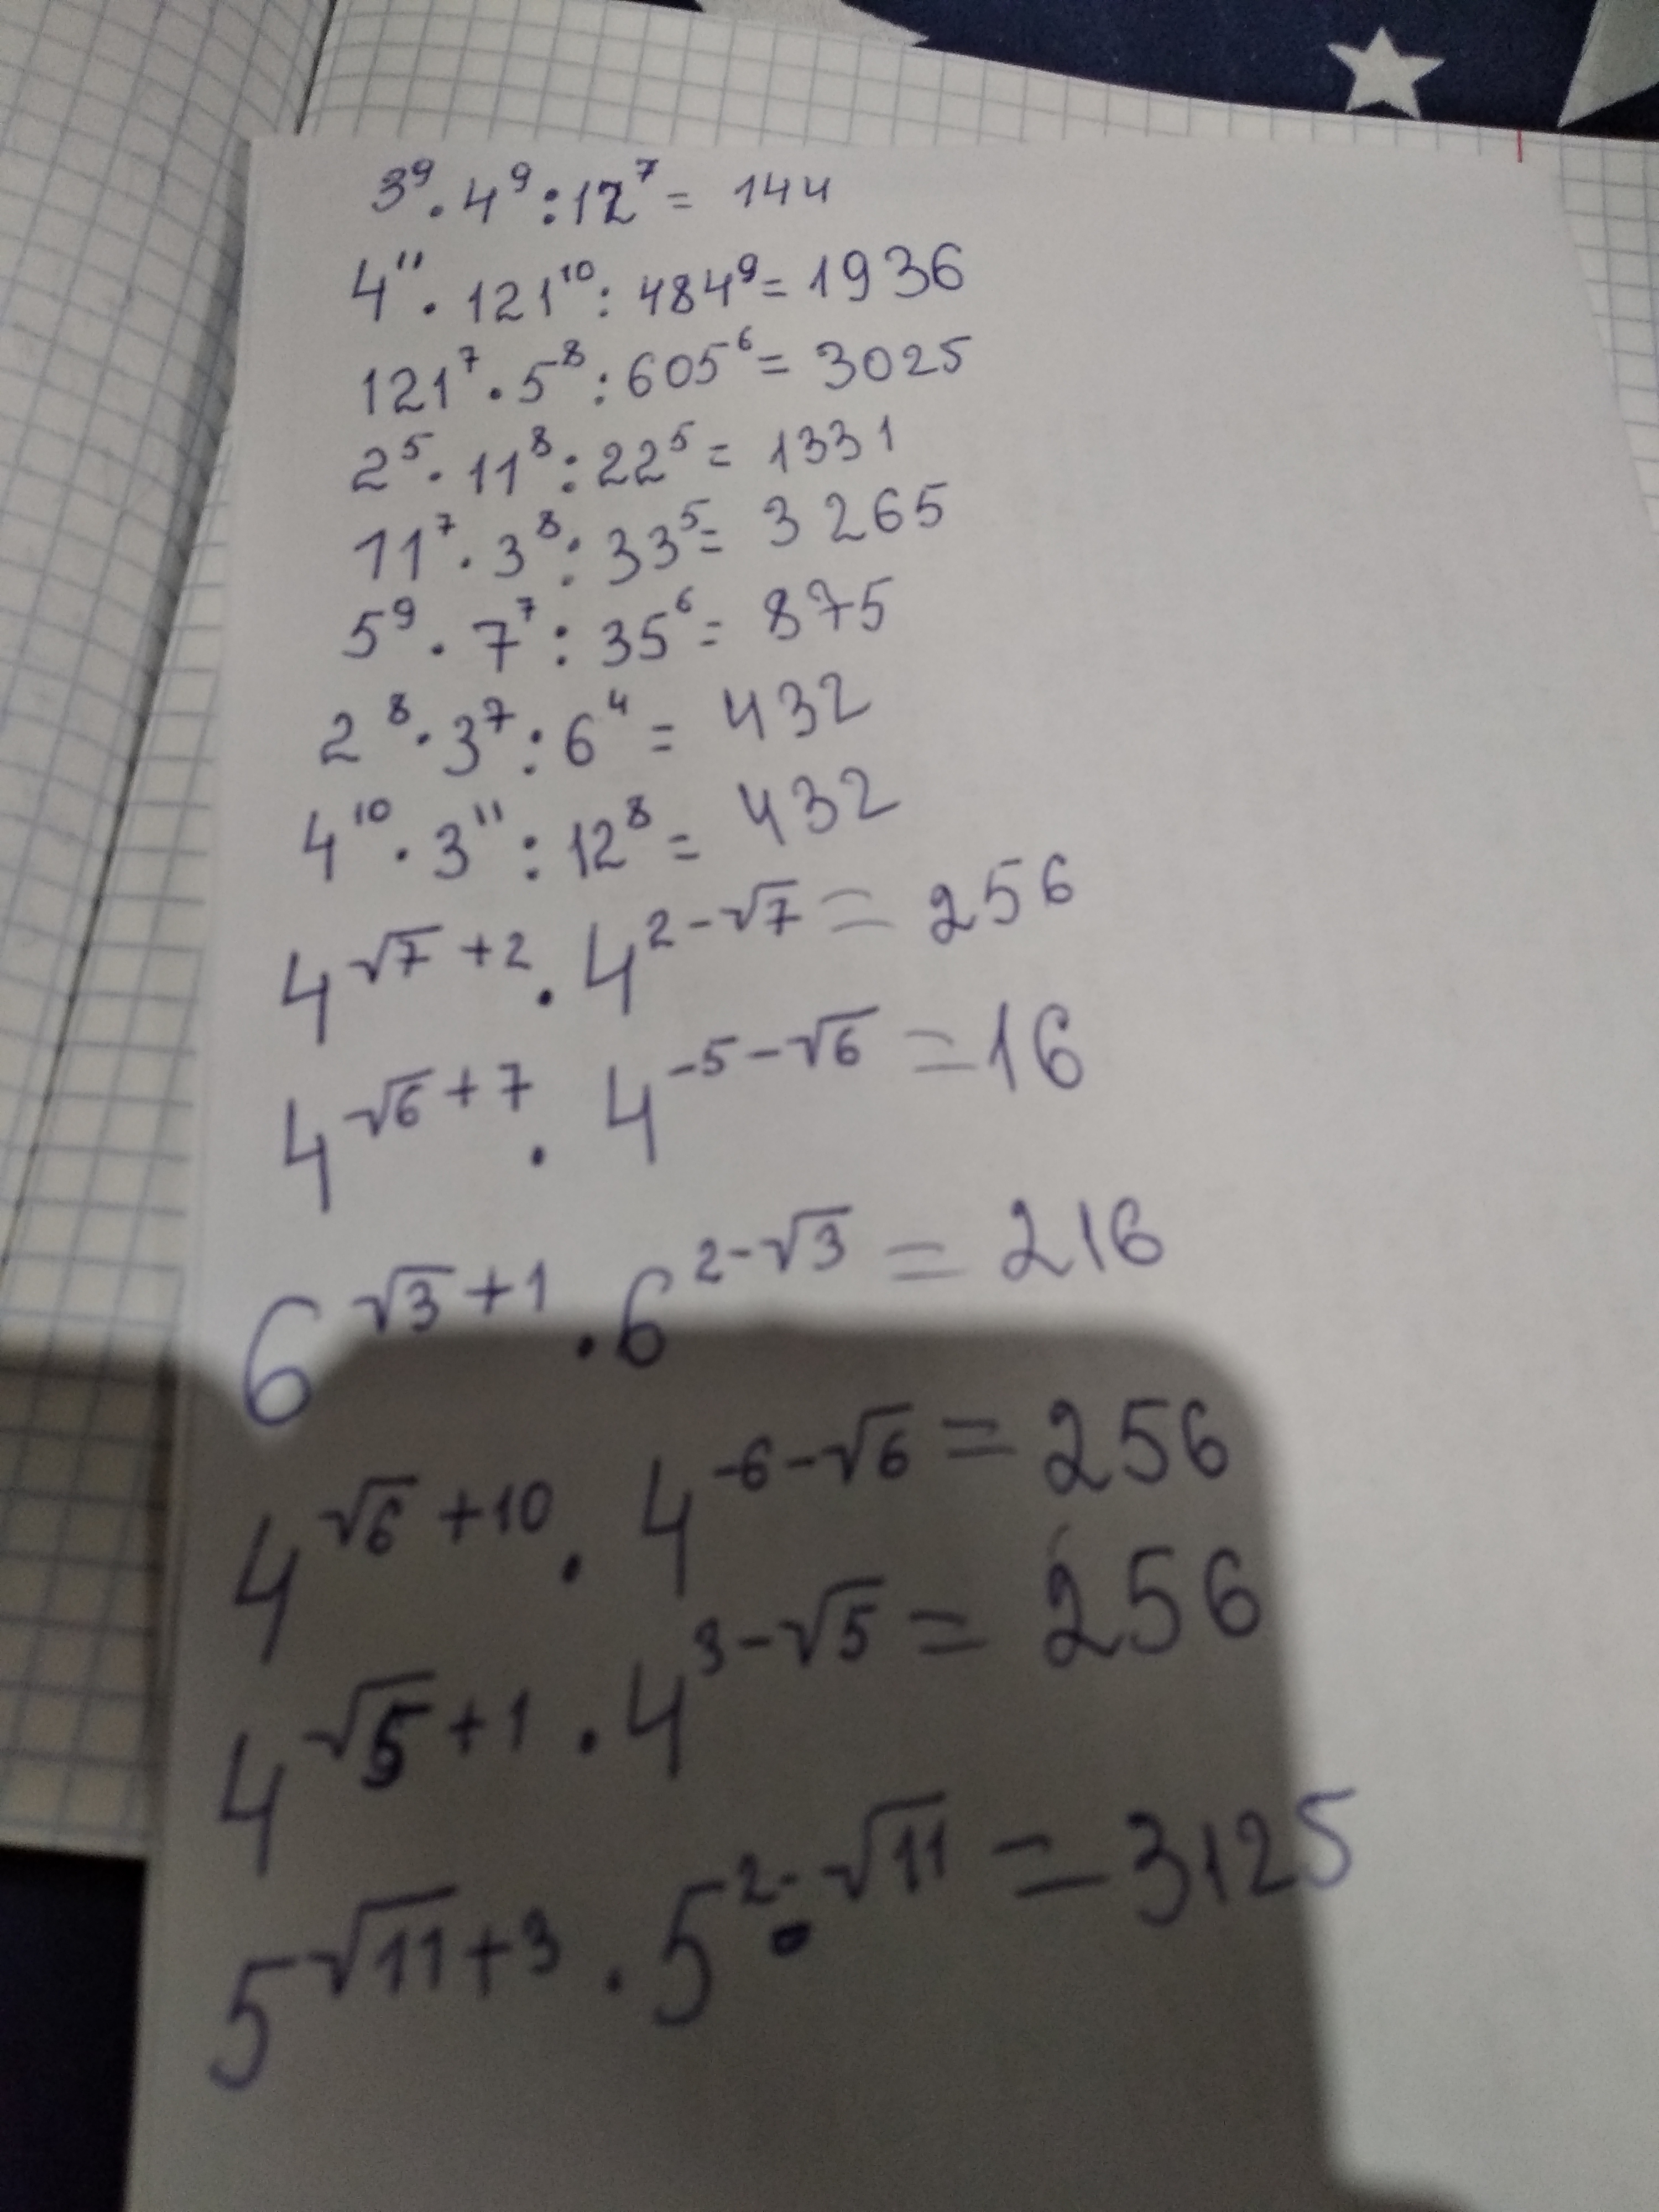 3⁹·4⁹:12⁷= 144
4¹¹·121¹⁰:484⁹=1936
121⁷·5⁸:605⁶=3025
2⁵·11⁸:22⁵= 1331
11⁷·3⁸:33⁵= 3265
5⁹·7⁷:35⁶= 875
2⁸·3⁷:6⁴= 432
4¹⁰·3¹¹:12⁸= 432
4^(√7+2)·4^(2-√7)=256
4^(√6+7)·4^(-5-√6)=16
6^(√3+1)·6^(2-√3)=216
4^(√6+10)·4^(-6-√6)=256
4^(√5+1)·4^(3-√5)=256
5^(√11+3)·5^(2-√11)=3125